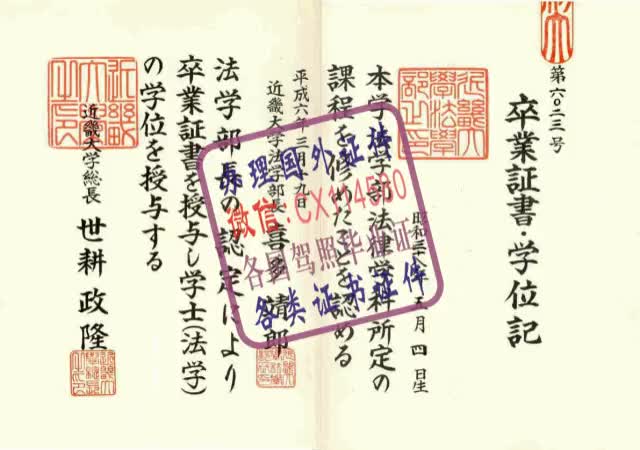 第六〇二三号
卒業証書・学位記
昭和三 五月四日生
本学法学部法律学科所定の
課程を修めたことを認める
平成六年三月 九日
近畿大学法学部長 喜多靖郎
法学部長の認定により
卒業証書を授与し学士(法学)
の学位を授与する
近畿大学総長 世耕政隆
办理国外证
微信:CX114580
各国驾照毕业证
各类证书证件